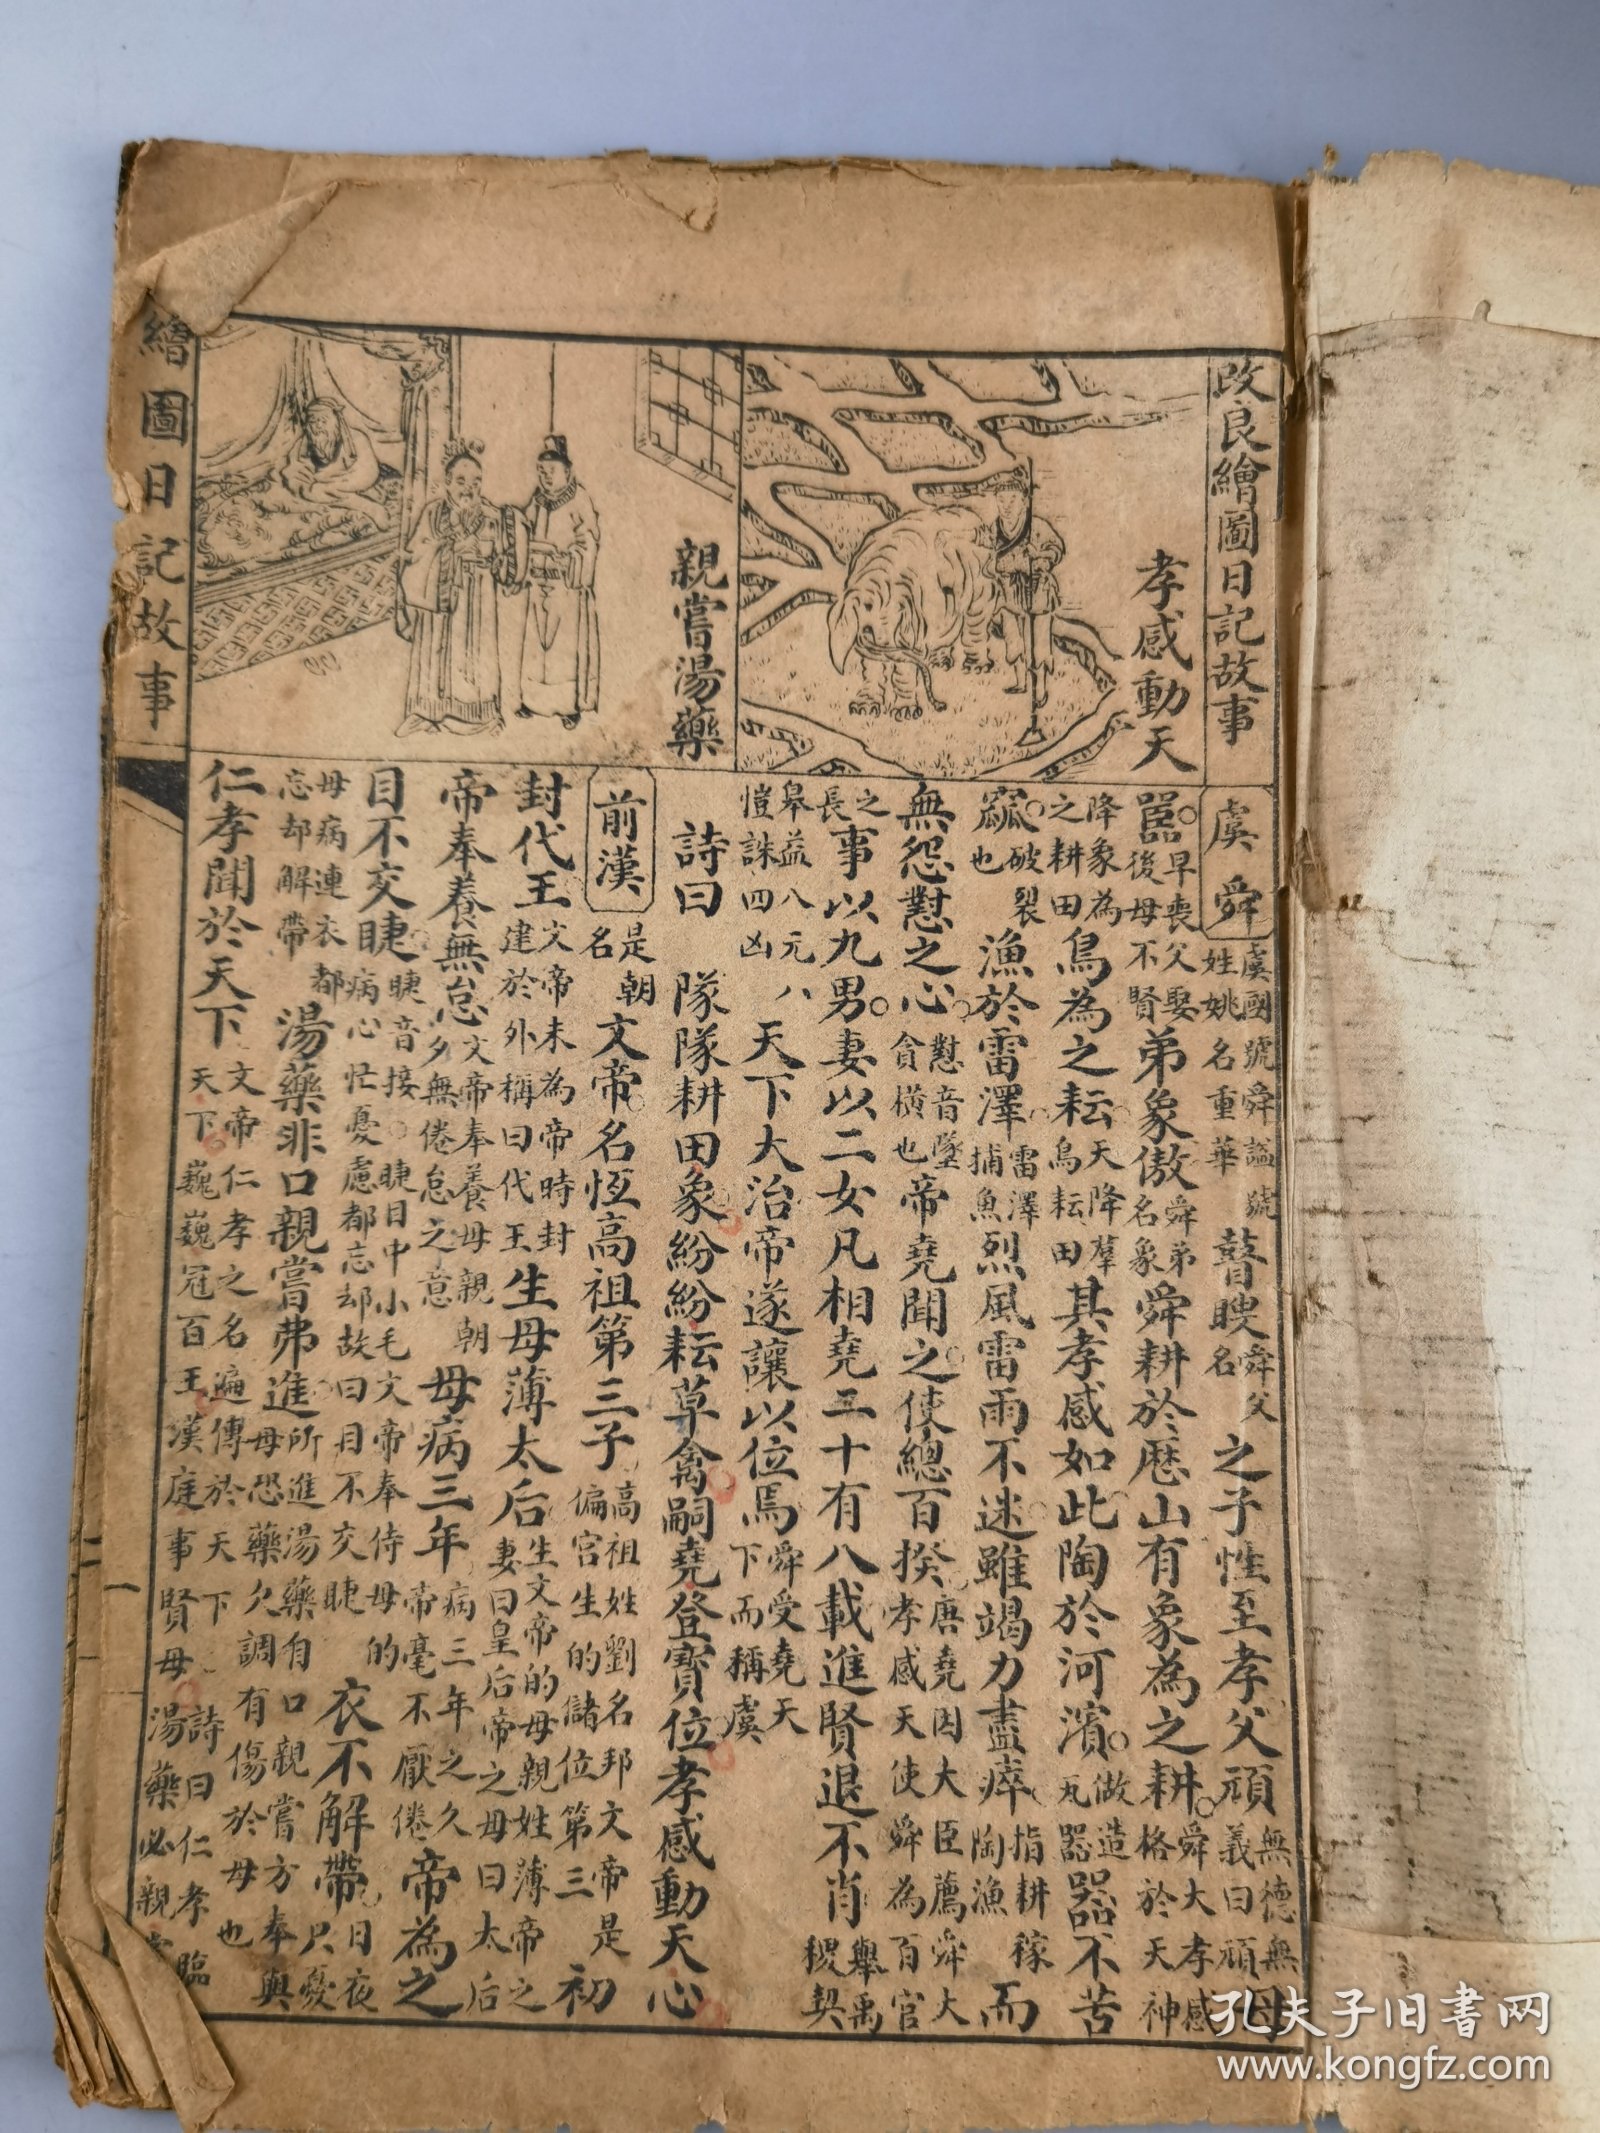 改良繪圖日記故事
孝感動天
虞舜 虞國號舜謚號姓姚名重華 瞽瞍 舜父名 之子性至孝父頑 無德無義曰頑 母
嚚 早喪父娶後母不賢 弟象傲 舜弟名象 舜耕於歷山有象為之耕 舜大孝感格於天神
降象為之耕田 鳥為之耘 天降羣鳥耘田 其孝感如此陶於河濱 做造瓦器 器不苦
窳 破裂也 漁於雷澤 雷澤捕魚 烈風雷雨不迷雖竭力盡瘁 指耕稼陶漁 而
無怨懟之心 懟音墜貪橫也 帝堯聞之使總百揆 唐堯因大臣薦舜大孝感天使舜為百官
之長 事以九男妻以二女凡相堯二十有八載進賢退不肖 舉禹稷契
皋益八元八愷誅四凶 天下大治帝遂讓以位焉 舜受堯天下而稱虞
詩曰 隊隊耕田象紛紛耘草禽嗣堯登寶位孝感動天心
親嘗湯藥
前漢 是朝名 文帝名恆高祖第三子 高祖姓劉名邦文帝是偏宮生的儲位第三 初
封代王 文帝未為帝時封建於外稱曰代王 生母薄太后 生文帝的母親姓薄帝之妻曰皇后帝之母曰太后
帝奉養無怠 文帝奉養母親朝夕無倦怠之意 母病三年 病三年之久帝毫不厭倦 帝為之
目不交睫 睫音接睫目中小毛文帝奉侍母的病心忙憂慮都忘却故曰目不交睫 衣不解帶 日夜只憂
母病連衣都忘却解帶 湯藥非口親嘗弗進 所進湯藥自口親嘗方奉與母恐藥久調有傷於母也
仁孝聞於天下 文帝仁孝之名遍傳於天下 詩曰 仁孝臨天下巍巍冠百王漢庭事賢母湯藥必親
繪圖日記故事
一
二
孔夫子旧书网
www.kongfz.com